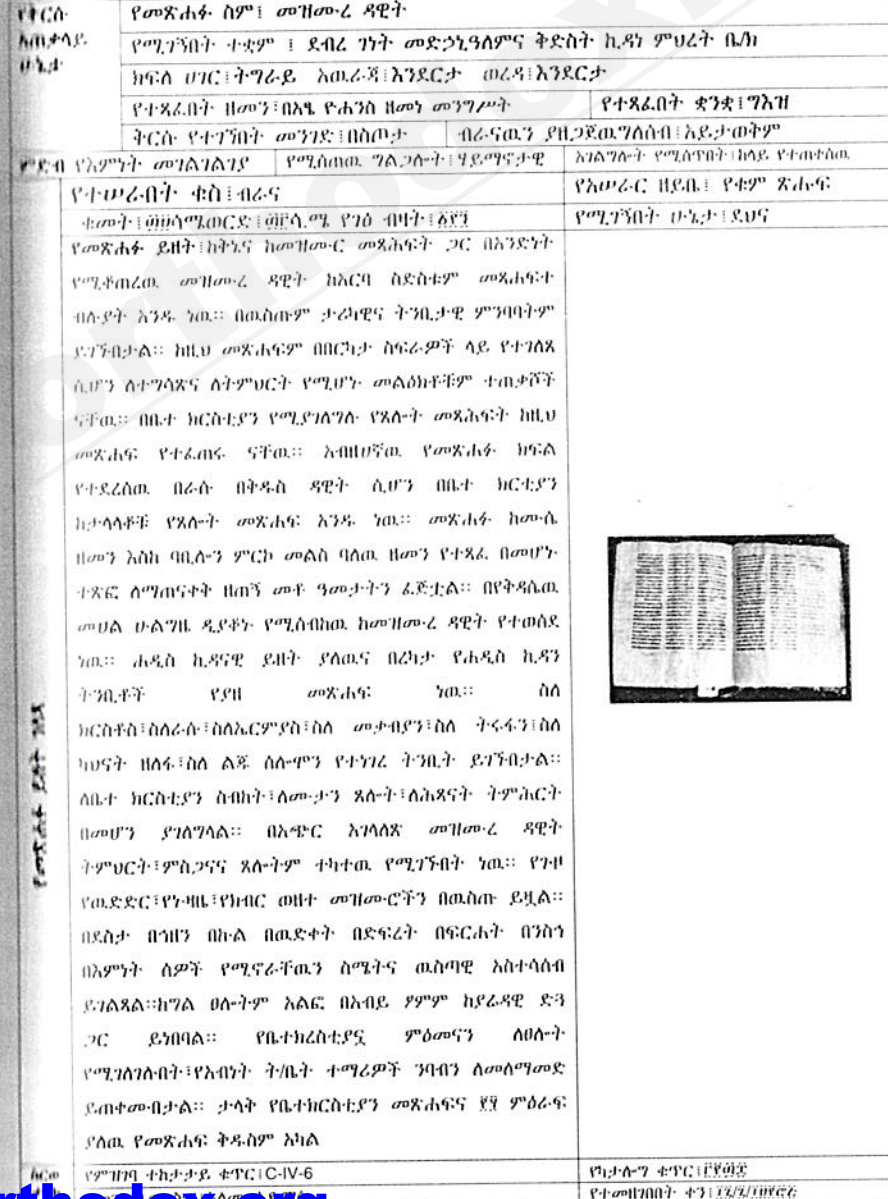 የቅርሱ
አጠቃላይ
ሁኔታ
የመጽሐፉ ስም፤ መዝሙረ ዳዊት
የሚገኝበት ተቋም ፤ ደብረ ገነት መድኃኒዓለምና ቅድስት ኪዳነ ምህረት ቤ/ክ
ክፍለ ሀገር፤ትግራይ አዉራጃ፤እንደርታ ወረዳ፤እንደርታ
የተጻፈበት ዘመን፤በአፄ ዮሐንስ ዘመነ መንግሥት
የተጻፈበት ቋንቋ፤ግእዝ
ቅርሱ የተገኘበት መንገድ፤በስጦታ
ብራናዉን ያዘጋጀዉግለሰብ፤አይታወቅም
ምድብ የእምነት መገልገልገያ
የሚሰጠዉ ግልጋሎት፤ሃይማኖታዊ
አገልግሎት የሚሰጥበት፤ከላይ የተጠቀሰዉ
የተሠራበት ቁስ፤ብራና
የአሠራር ዘይቤ፤ የቁም ጽሑፍ
የሚገኝበት ሁኔታ፤ደህና
የመጽሐፉ ይዘት፤ከቅኔና ከመዝሙር መጻሕፍት ጋር በአንድነት
የሚቆጠረዉ መዝሙረ ዳዊት ከአርባ ስድስቱም መጻሕፍተ
ብሉያት አንዱ ነዉ። በዉስጡም ታሪካዊና ትንቢታዊ ምንባባትም
ይገኙበታል። ከዚህ መጽሐፍም በበርካታ ስፍራዎች ላይ የተገለጸ
ሲሆን ለተግሳጽና ለትምህርት የሚሆኑ መልዕክቶቹም ተጠቃሾች
ናቸዉ። በቤተ ክርስቲያን የሚያገለግሉ የጸሎት መጻሕፍት ከዚህ
መጽሐፍ የተፈጠሩ ናቸዉ። አብዘሀኛዉ የመጽሐፉ ክፍል
የተደረሰዉ በራሱ በቅዱስ ዳዊት ሲሆን በቤተ ክርቲያን
ከታላላቆቹ የጸሎት መጽሐፍ አንዱ ነዉ። መጽሐፉ ከሙሴ
ዘመን እስከ ባቢሎን ምርኮ መልስ ባለዉ ዘመን የተጻፈ በመሆኑ
ተጽፎ ለማጠናቀቅ ዘጠኝ መቶ ዓመታትን ፈጅቷል። በየቅዳሴዉ
መሀል ሁልግዜ ዲያቆኑ የሚሰብከዉ ከመዝሙረ ዳዊት የተወሰደ
ነዉ። ሐዲስ ኪዳናዊ ይዘት ያለዉና በረካታ የሐዲስ ኪዳን
ትንቢቶች የያዘ መጽሐፍ ነዉ። ስለ
ክርስቶስ፤ስለራሱ፤ስለኤርምያስ፤ስለ መቃብያን፤ስለ ትሩፋን፤ስለ
ካህናት ዘለፋ፤ስለ ልጁ ሰሎሞን የተነገረ ትንቢት ይገኙበታል።
ለቤተ ክርስቲያን ስብከት፤ለሙታን ጸሎት፤ለሕጻናት ትምሕርት
በመሆን ያገለግላል። በአጭር አገላለጽ መዝሙረ ዳዊት
ትምህርት፤ምስጋናና ጸሎትም ተካተዉ የሚገኙበት ነዉ። የጉዞ
የዉድድር፤የኑዛዜ፤የክብር ወዘተ መዝሙሮችን በዉስጡ ይዟል።
በደስታ በኀዘን በኩል በዉድቀት በድፍረት በፍርሐት በንስኀ
በእምነት ሰዎች የሚኖራቸዉን ስሜትና ዉስጣዊ አስተሳሰብ
ይገልጻል።ከግል ፀሎትም አልፎ በአብይ ፆምም ከያሬዳዊ ድጓ
ጋር ይነበባል። የቤተክረስቲያኗ ምዕመናን ለፀሎት
የሚገለገሉበት፤የአብነት ት/ቤት ተማሪዎች ንባብን ለመለማመድ
ይጠቀሙበታል። ታላቅ የቤተክርስቲያን መጽሐፍና ምዕራፍ
ያለዉ የመጽሐፍ ቅዱስም አካል
የምዝገባ ተከታታይ ቁጥር፤C-IV-6
የካታሎግ ቁጥር፤
የተመዘገበበት ቀን፤
orthodox